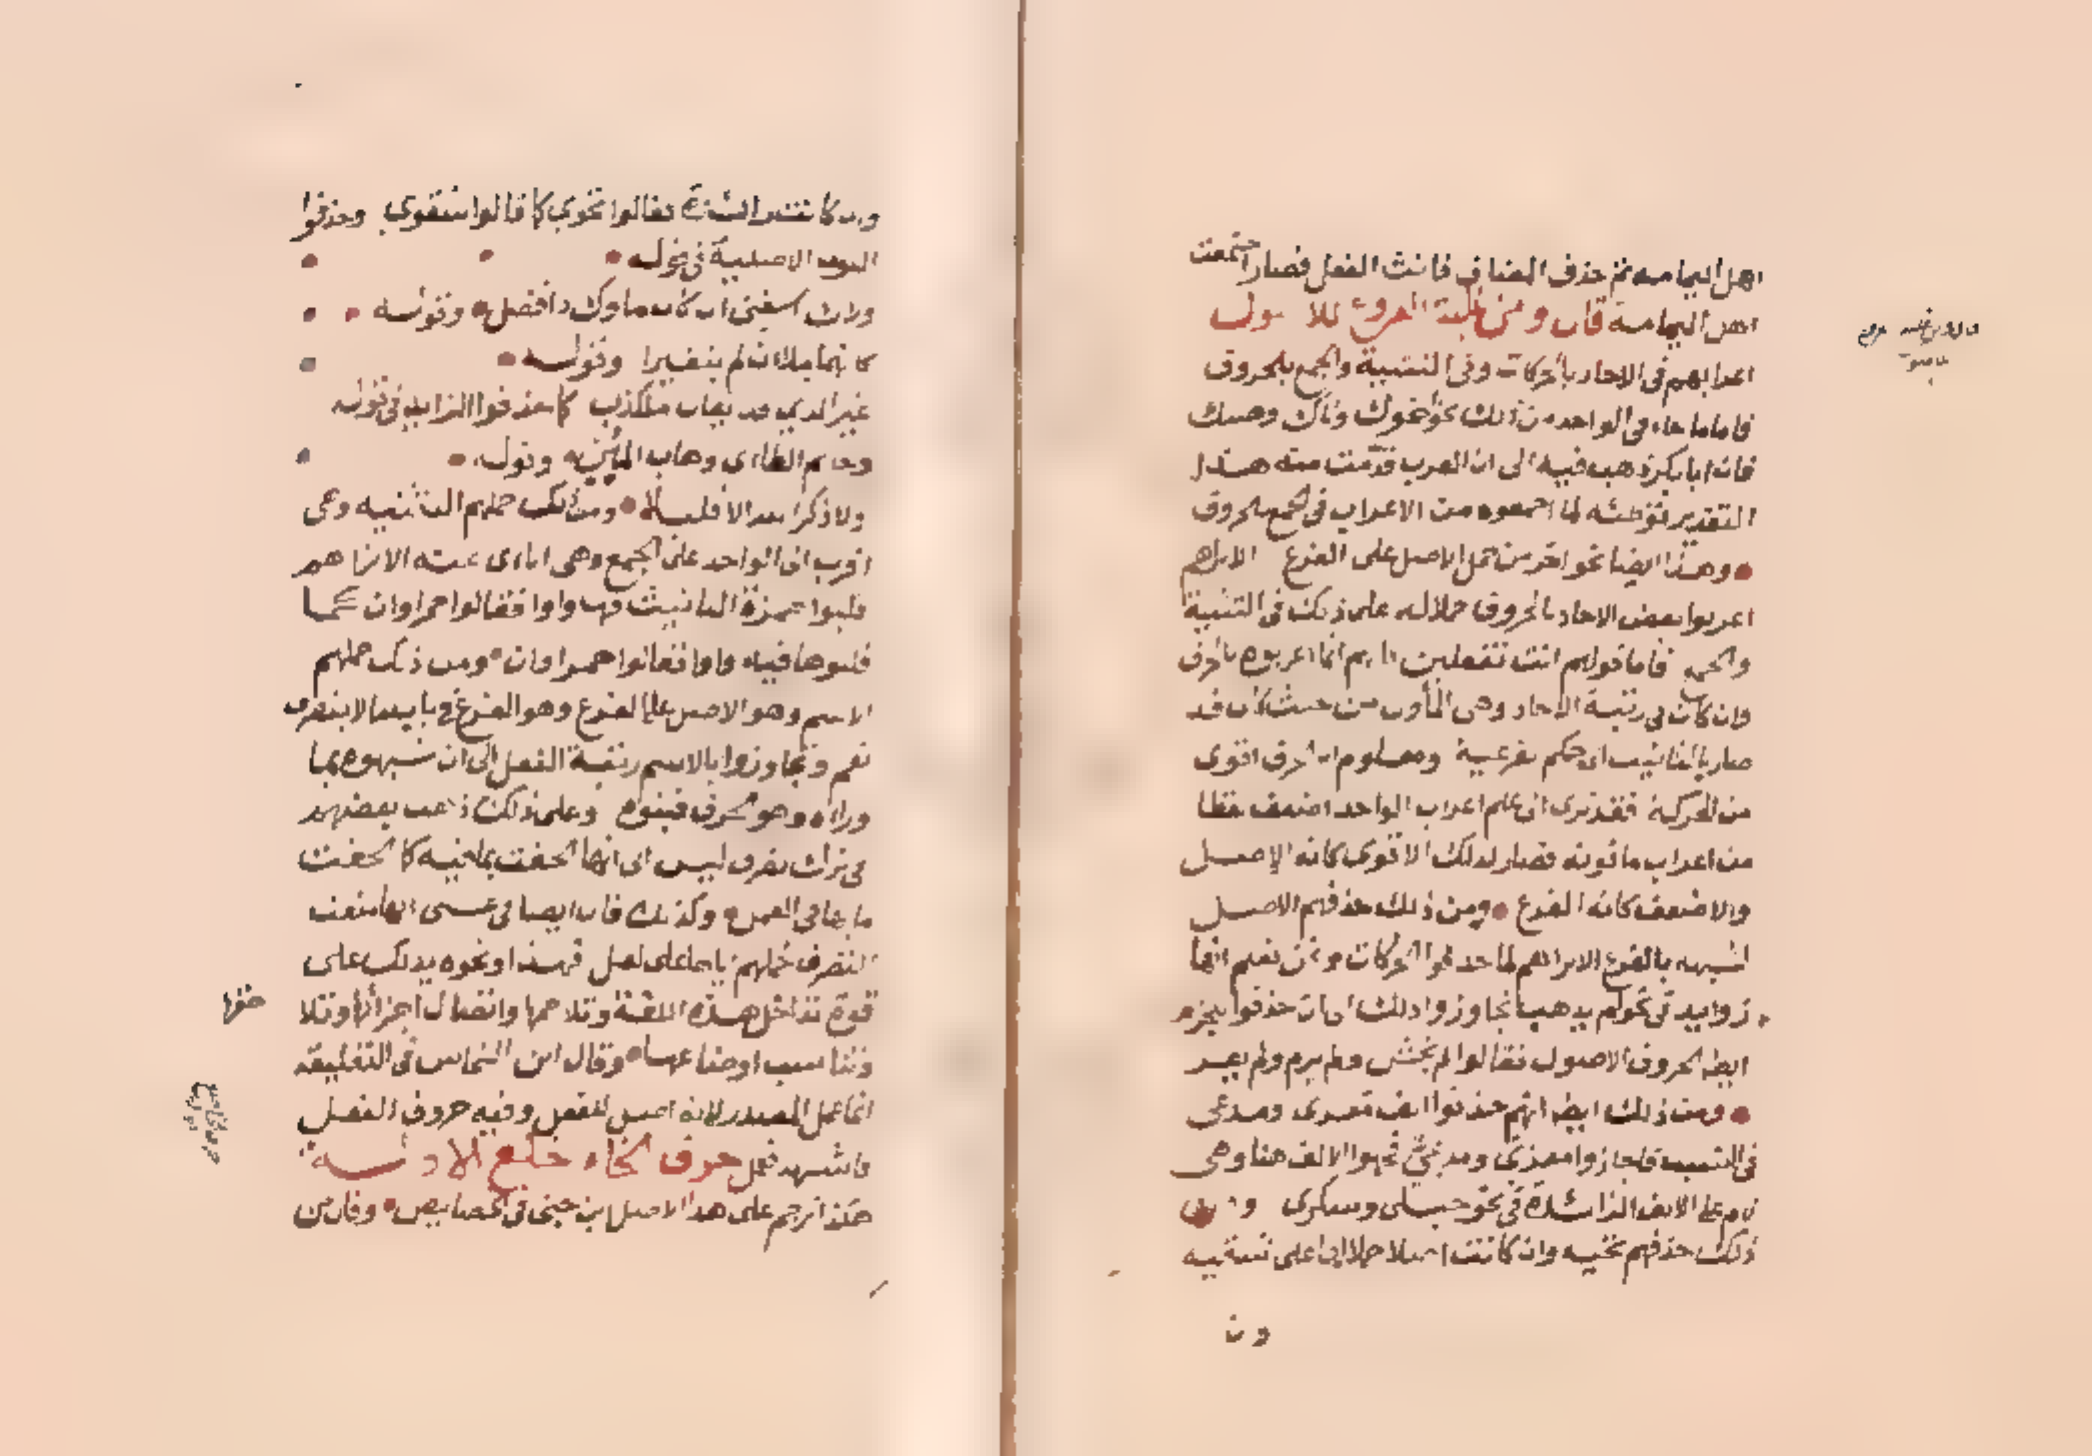 اهل اليمامة ثم حذف المضاف فانث الفعل فصار اجتمعت
اهل اليمامة قال ومن غلبة الفروع للاصول
اعرابهم في الاحاد بالحركات وفي التثنية والجمع بالحروف
فاما ما جاء في الواحد من ذلك نحو اخوك واباك وهنيك
فان ابا بكر ذهب فيه الى ان العرب قدمت منه هذا
التقدير توطئه لما اجمعوه من الاعراب في الجمع بالحروف
وهذا ايضا نحو اخر من حمل الاصل على الفرع الا تراهم
اعربوا بعض الاحاد بالحروف حملا له على ذلك في التثنية
والجمع فاما قولهم انت تفعلين فانهم انما اعربوه بالحرف
وان كان في رتبة الاحاد وهي الاول من حيث كان قد
صار بالتانيث الى حكم الفرعية ومعلوم ان الحرف اقوى
من الحركة فقد ترى الى علم اعراب الواحد اضعف لفظا
من اعراب ما فوقه فصار لذلك الاقوى كانه الاصل
والاضعف كانه الفرع ومن ذلك حذفهم الاصل
لشبهه بالفرع الا تراهم لما حذفوا الحركات ونحن نعلم انها
زوايد في نحو لم يذهب تجاوزوا ذلك الى ان حذفوا للجزم
ايضا الحروف الاصول فقالوا لم يخش ولم يرم ولم يغز
ومن ذلك ايضا انهم حذفوا الف مغزى ومدعى
في النسب فاجازوا مغزي ومدعي فحملوا الالف هنا وهي
لام على الالف الزائدة في نحو حبلى وسكرى ومن
ذلك حذفهم تحيه وان كانت اصلا حملا لها على شقيه
ون
وان كانت زائدة فقالوا تحوي كما قالوا شقوي وحذفوا
النون الاصلية في قوله
ولاك اسقني ان كان ماؤك ذا فضل وقوله
كانهما ملان لم يتغيرا وقوله
غير الذي قد يقال ملكذب كما حذفوا الزايد في قوله
وحاتم الطاءي وهاب المئي وقوله
ولا ذاكر الله الا قليلا ومن ذلك حملهم التثنيه وهي
اقرب الى الواحد على الجمع وهي اناى عنه الا تراهم
قلبوا همزة التانيث فيه واوا فقالوا حمراوان كما
قلبوها فيه واوا فقالوا حمراوات ومن ذلك حملهم
الاسم وهو الاصل على الفرع وهو الفرع في باب ما لا ينصرف
نعم وتجاوزوا بالاسم رتبة الفعل الى ان شبهوه بما
وراءه وهو الحرف فبنوه وعلى ذلك ذهب بعضهم
في ترك تصرف ليس الى انها الحقت بما فيه كما الحقت
ما بها في العمل وكذلك قال ايضا في عسى انها منعت
التصرف لحملهم اياها على لعل فهذا ونحوه يدلك على
قوة تداخل هذه اللغة وتلاحمها واتصال اجزائها وتلا
حقها
وتناسب اوضاعها وقال ابن النحاس في التعليقة
انما عمل المصدر لانه اصل للفعل وفيه حروف الفعل
فاشبهه فعمل حرف الخاء خلع الادلة
هكذا ترجم على هذا الاصل ابن جني في الخصايص وقال من